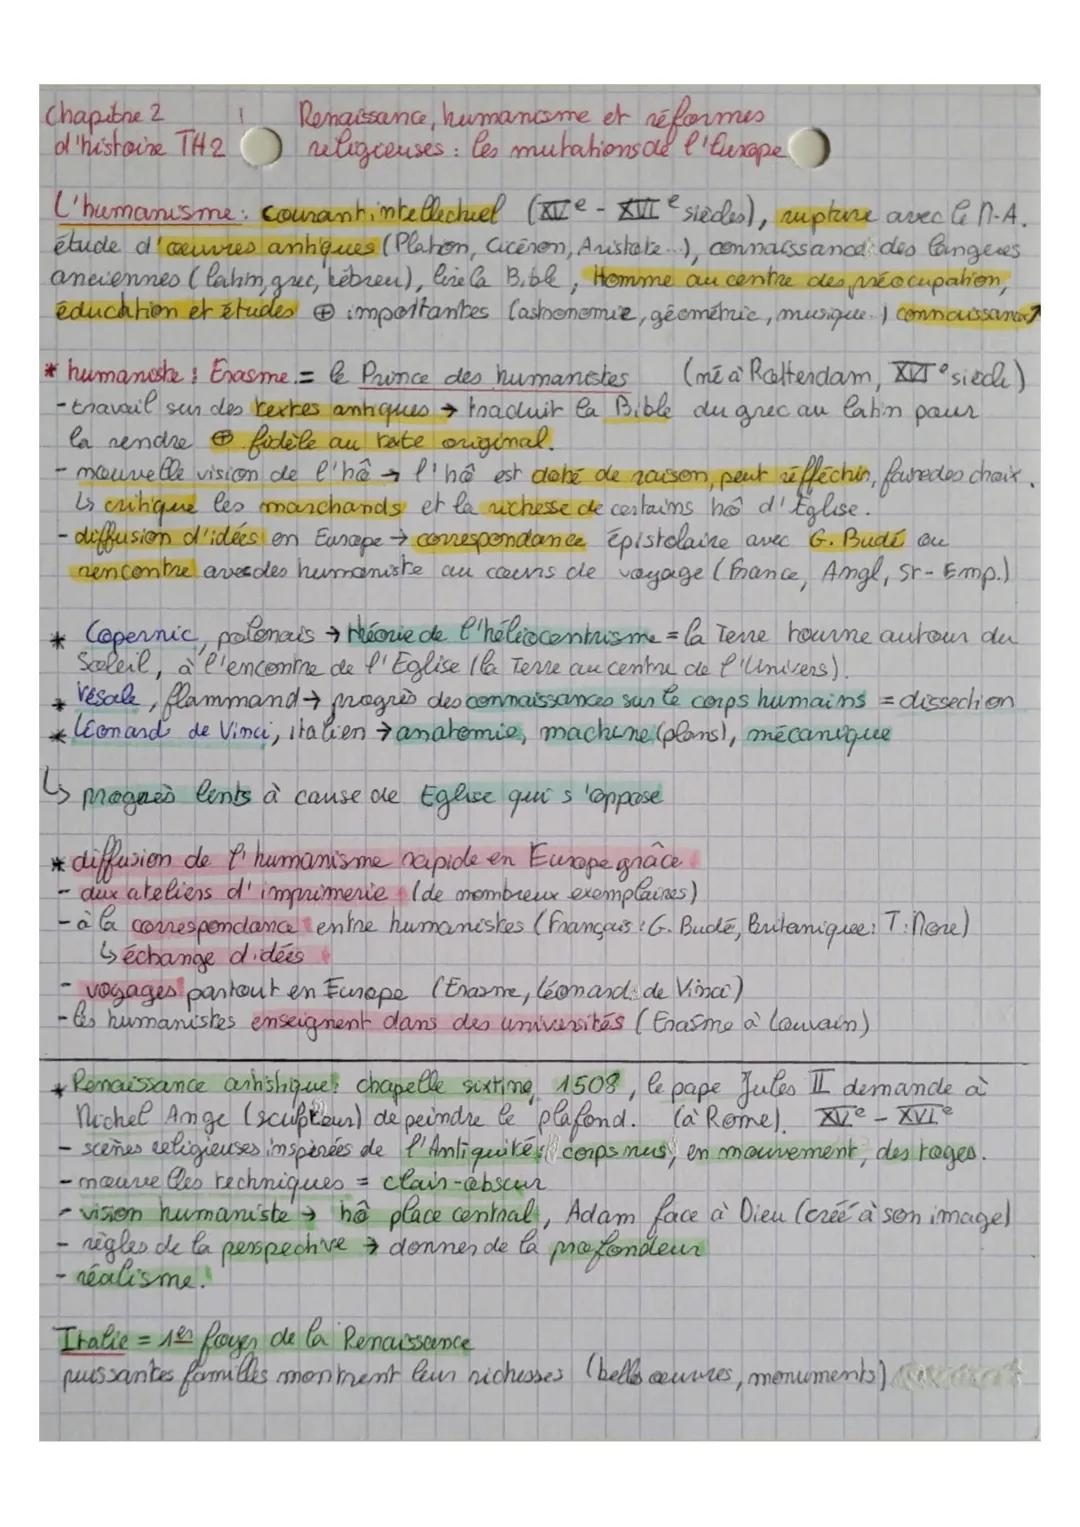 Chapitre 2 Renaissance, humanisme et réformes
d'histoire TH2 religieuses : les mutations de l'Europe
L'humanisme : courant intellectuel (XVe - XVIe siècles), rupture avec le M-A.
étude d'œuvres antiques (Platon, Cicéron, Aristote...), connaissance des langues
anciennes (latin, grec, hébreu), lire la Bible, Homme au centre des préocupation,
éducation et études ⊕ importantes (astronomie, géométrie, musique..) connaissance↗
* humaniste : Erasme = le Prince des humanistes (né à Rotterdam, XVIe siècle)
- travail sur des textes antiques → traduit la Bible du grec au latin pour
la rendre ⊕ fidèle au texte original.
- nouvelle vision de l'hô → l'hô est doté de raison, peut réfléchir, faire des choix.
↳ critique les marchands et la richesse de certains hô d'Église.
- diffusion d'idées en Europe → correspondance épistolaire avec G. Budé ou
rencontre avec des humaniste au cours de voyage (France, Angl, St-Emp.)
* Copernic, polonais → théorie de l'héliocentrisme = la Terre tourne autour du
Soleil, à l'encontre de l'Eglise (la Terre au centre de l'Univers).
* Vésale, flammand → progrès des connaissances sur le corps humains = dissection
* Léonard de Vinci, italien → anatomie, machine (plans), mécanique
↳ progrès lents à cause de Eglise qui s'oppose
* diffusion de l'humanisme rapide en Europe grâce
- aux ateliers d'imprimerie (de nombreux exemplaires)
- à la correspondance entre humanistes (Français : G. Budé, Britanique : T. More)
↳ échange d'idées
- voyages partout en Europe (Erasme, Léonard de Vinci)
- les humanistes enseignent dans des universités (Erasme à Louvain)
* Renaissance artistique : chapelle sixtine, 1508, le pape Jules II demande à
Michel Ange (sculpteur) de peindre le plafond. (à Rome). XVe - XVIe
- scènes religieuses inspirées de l'Antiquité : corps nus, en mouvement, des toges.
- nouvelles techniques = clair-obscur
- vision humaniste → hô place central, Adam face à Dieu (créé à son image)
- règles de la perspective → donner de la profondeur
- réalisme.
Italie = 1er foyer de la Renaissance
puissantes familles montrent leur richesses (belles œuvres, monuments)